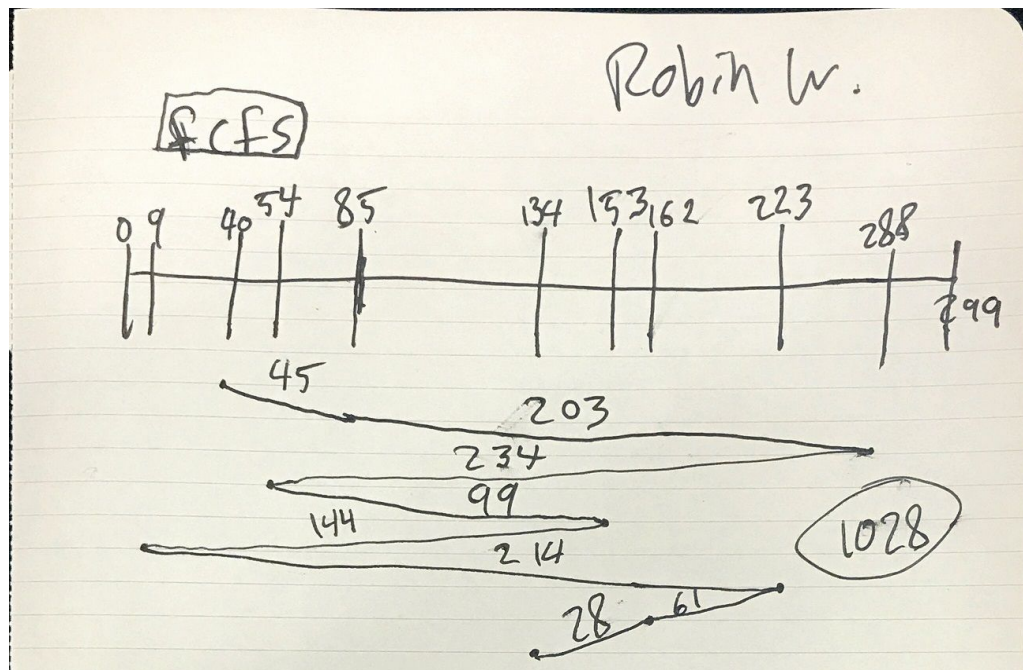 Robin W.
fcfs
0 9 40 54 85 134 153 162 223 288
299
45
203
234
99
144
214
1028
61
28